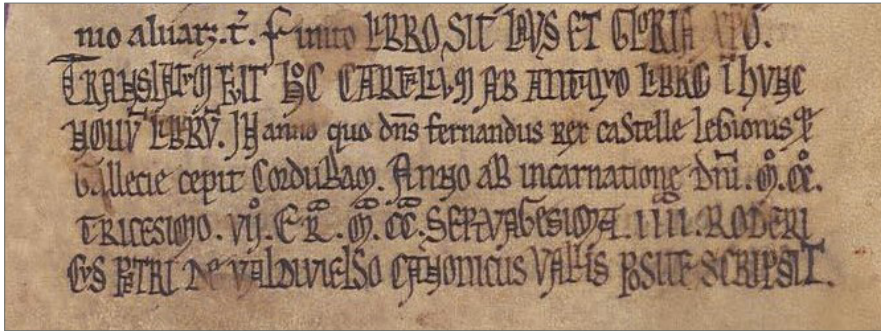 nio aluarz. t̃. Finito LIBRO SIT LAUS ET GLORIA XP̃O.
TRANSLATUM FUIT HOC CARTALLUM AB ANTIQUO LIBRO IN HUNC
NOUŨ LIBRŨ. IN anno quo dñs fernandus rex caStelle legionis et
Gallecie cepit CorduBam. ANNO aB incarnatione dñi. M̊. CC̊.
TRICESIMO. VIJ. ER̃. M̊. CC̊. SEPTUAGESIMA. IIII. RODERI
CUS PETRI De VALDIVIELSO CANONICUS VALLIS POSITE SCRIPSIT.